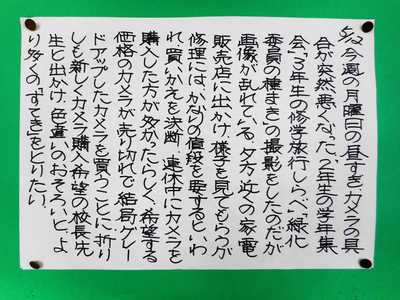 5/12 今週の月曜日の昼すぎ、カメラの具
合が突然、悪くなった。2年生の学年集
会、「3年生の修学旅行しらべ」、「緑化
委員の種まき」の撮影をしたのだが
画像が乱れている。夕方、近くの家電
販売店に出かけ、様子を見てもらうが
修理には、かなりの値段を要するといわ
れ、買いかえを決断。連休中にカメラを
購入した方が多かったらしく、希望する
価格のカメラが売り切れで、結局、グレー
ドアップしたカメラを買うことに。折り
しも新しくカメラ購入希望の校長先
生と出かけ、色違いのおそろい。と、よ
り多くの「すてき」をとりたい。